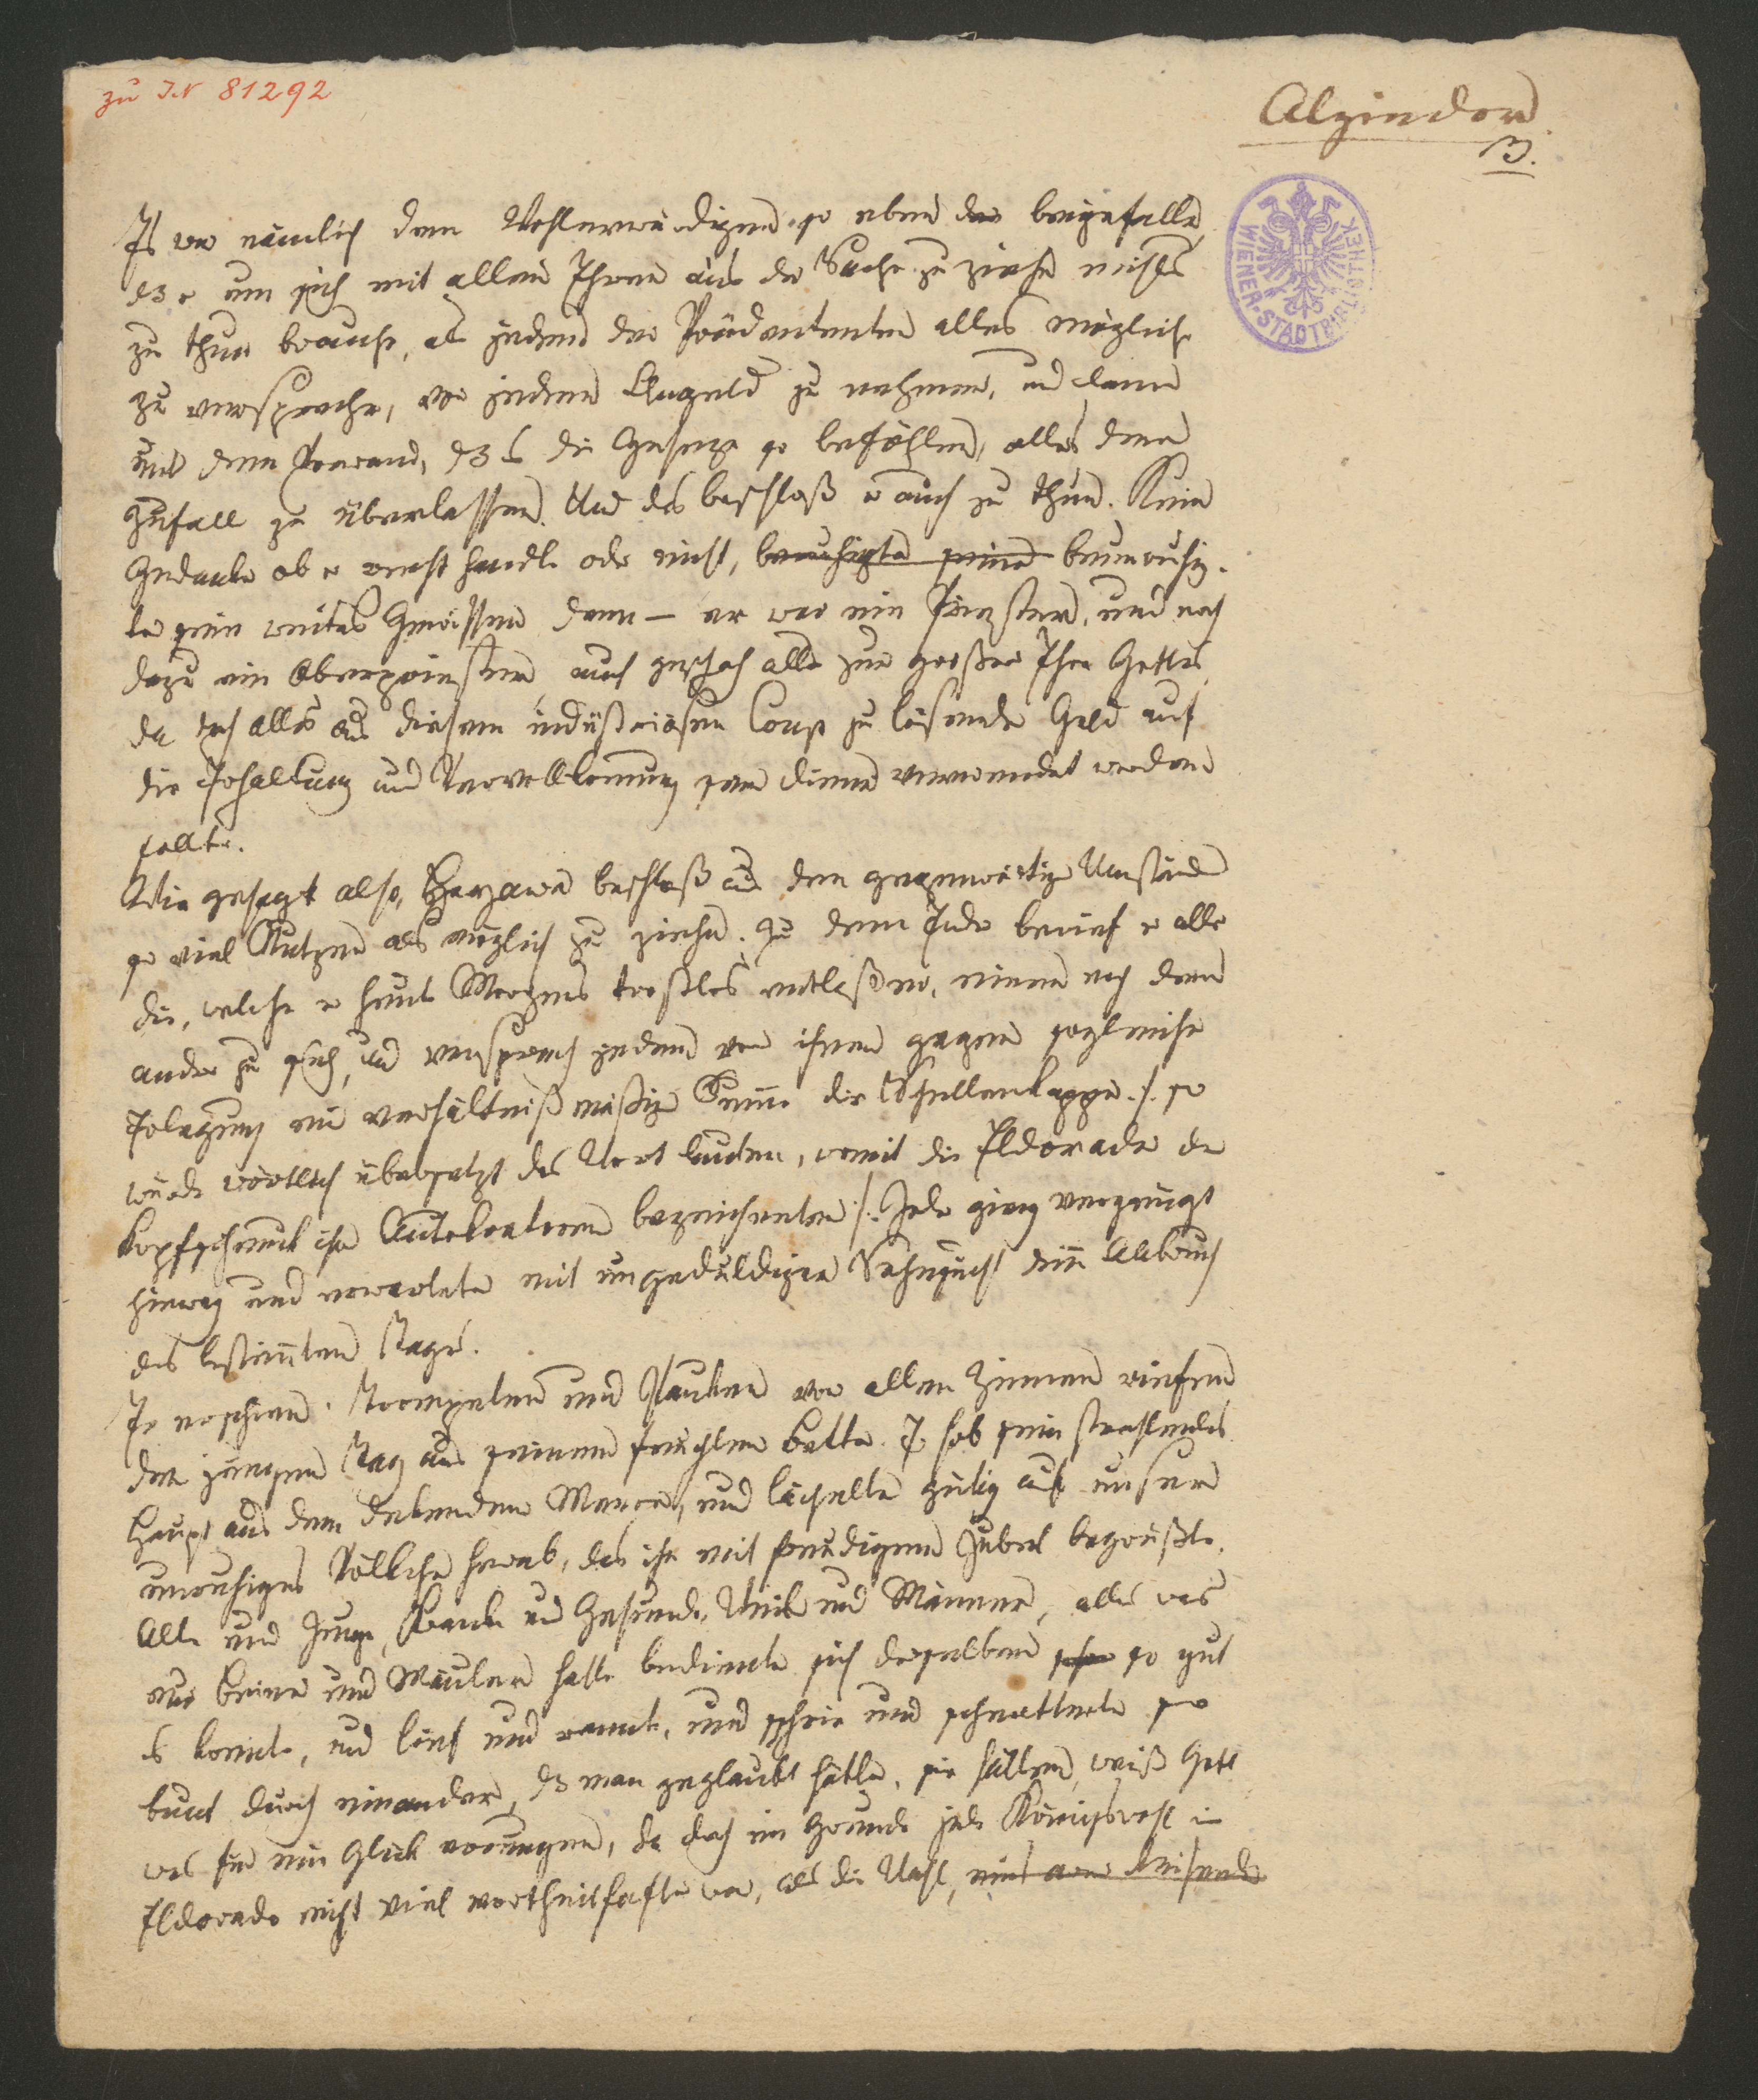 zu I.N 81292
Alzindor
3.
WIENER STADTBIBLIOTHEK
Es war nämlich dem Wohlerwürdigen so eben bey gefallen
dß er um sich mit allen Ehren aus der Sache zu ziehen nichts
zu thun brauche, als jedem der Prädententen alles mögliche
zu versprechen, von jedem Angeld zu nehmen, und dann
unter dem Vorwand, dß es die Gesetze so befählen, alles dem
Zufall zu überlassen. Und das beschloß er auch zu thun. Kein
Gedanke ob er recht handle oder nicht, beruhigte seine beunruhig-
te sein weites Gewissen denn – er war ein Priester, und noch
dazu ein Oberpriester, auch geschah alles zur großen Ehre Gottes
da doch alles aus diesem indüstriösen Coup zu lösende Geld auf
die Erhaltung und Vervollkomung seiner Diener verwendet werden
sollte.
Wie gesagt also, beschloß aus den gegenwärtigen Umständen
so viel Nutzen als möglich zu ziehen. Zu dem Ende berief er alle
die, welche er heute Morgens trostlos entlaßen, einen nach dem
andern zu sich, und versprach jedem von ihnen gegen sogleiche
Erlegung einer verhältnißmäßigen Summe die Schellenkappe ./. so
würde wörtlich übersetzt das Wort lauten, womit die Eldorader den
Kopfschmuck ihrer Autokratoren bezeichneten ./. Jeder gieng vergnügt
hinweg und erwartete mit ungeduldiger Sehnsucht den Anbruch
des bestimmten Tages.
Er erschien. Trompeten und Pauken von allen Zinnen riefen
den jungen Tag aus seinem feuchten Bette. Er hob sein strahlendes
Haupt aus dem Meere, und lächelte gütig auf unser
unruhiges Völkchen herab, das ihn mit freudigem Jubel begrüßte.
Alte und Junge, Kranke und Gesunde, Weiber und Männer, alles was
nur Beine und Mäuler hatte bediente sich derselben so gut
es konnte, und lief und rannte, und schrie und schnatterte so
bunt durch einander, dß man geglaubt hätte, sie hätten, weiß Gott
was für ein Glück errungen, da doch im Grunde jede Königswahl in
Eldorado nicht viel vortheilhafter war, als die Wahl,